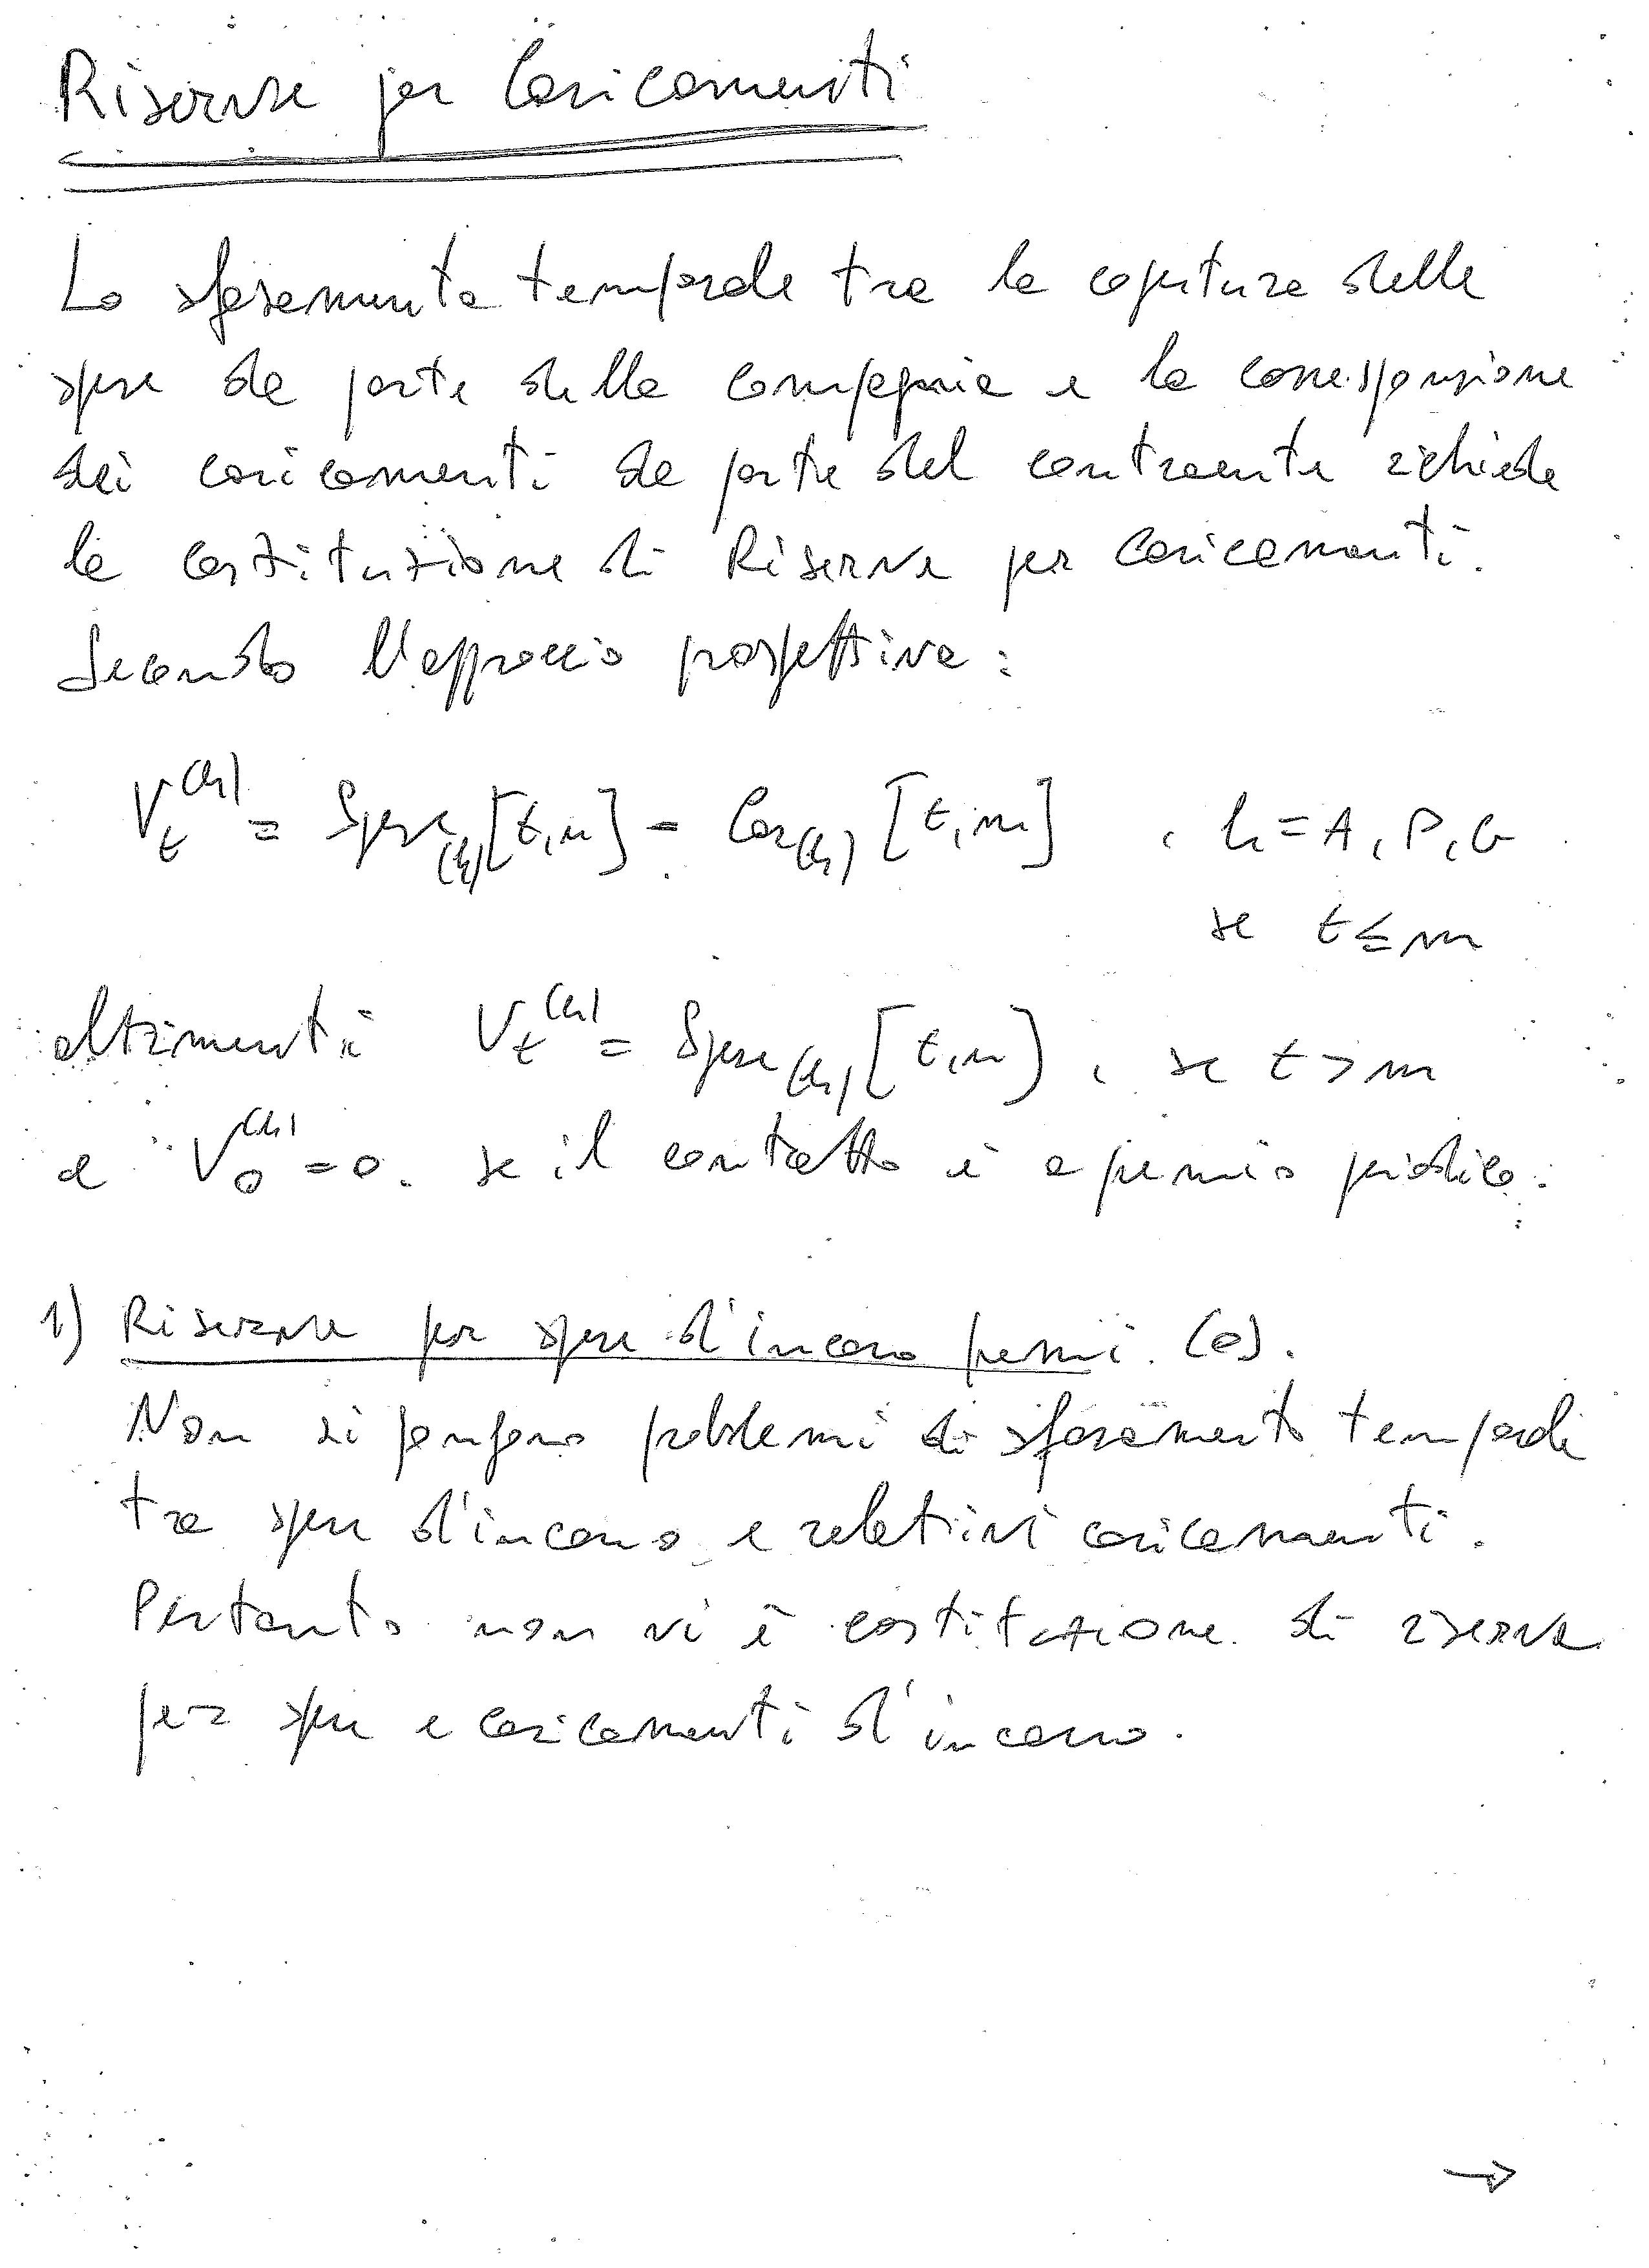 Riserve per Caricamenti
Lo sfasamento temporale tra la copertura delle
spese da parte della Compagnia e la corresponsione
dei caricamenti da parte del contraente richiede
la costituzione di Riserve per Caricamenti.
Secondo l'approccio prospettivo:
V_t^(h) = Spese_(h)[t,n] - Car_(h)[t,m] , h = A, P, G
se t ≤ m
altrimenti V_t^(h) = Spese_(h)[t,n) , se t > m
e V_0^(h) = 0. se il contratto è a premio periodico.
1) Riserva per spese d'incasso premi. (P).
Non si pongono problemi di sfasamento temporale
tra spese d'incasso e relativi caricamenti.
Pertanto non vi è costituzione di riserva
per spese e caricamenti d'incasso.
→